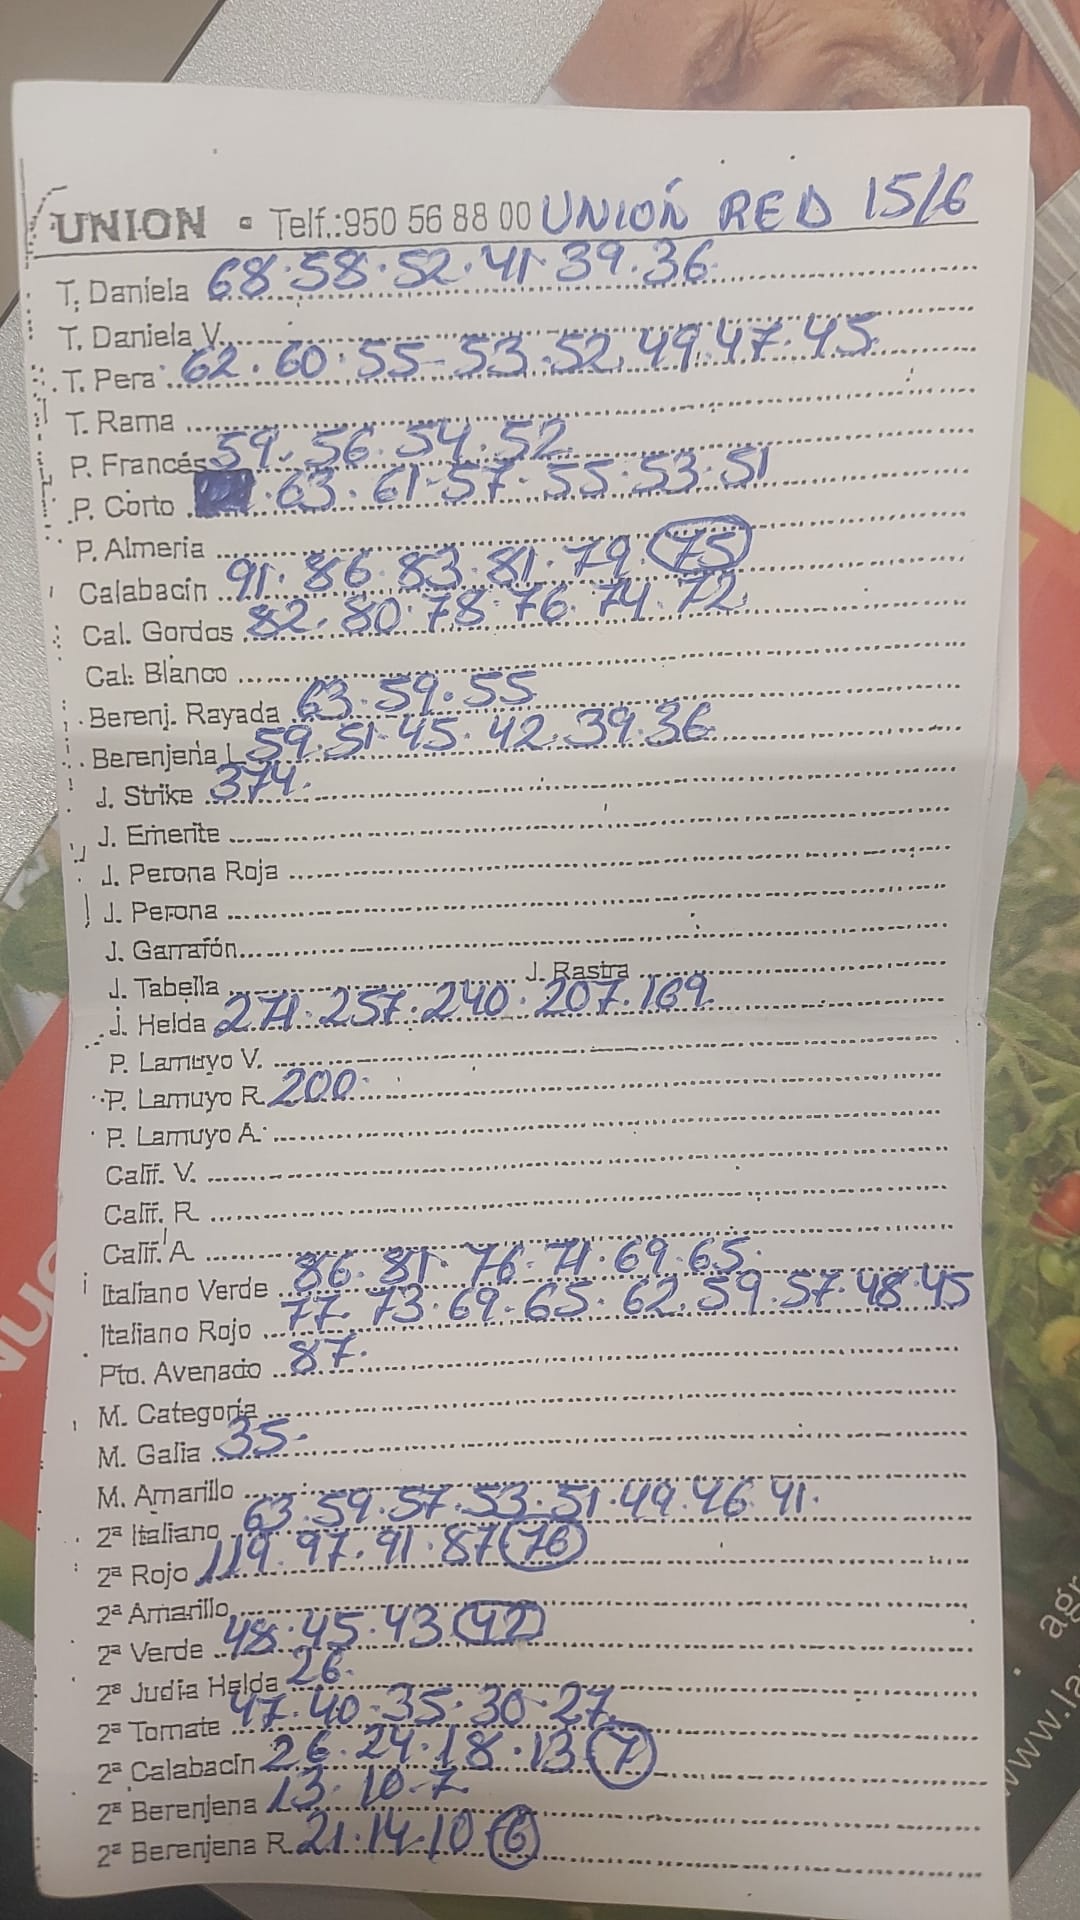 UNION • Telf.:950 56 88 00 UNIÓN RED 15/6
T. Daniela 68.58.52.41.39.36.
T. Daniela V.
T. Pera 62.60.55-53.52.49.47.45
T. Rama
P. Francés 59.56.54.52
P. Corto .63.61-57.55.53.51
P. Almeria
Calabacín 91.86.83.81.79.75
Cal. Gordos 82.80.78.76.74.72
Cal. Blanco
Berenj. Rayada 63.59.55
Berenjena L 59.51-45.42.39.36
J. Strike 374.
J. Emerite
J. Perona Roja
J. Perona
J. Garrafón
J. Tabella J. Rastra
J. Helda 271.257.240.207.169
P. Lamuyo V.
P. Lamuyo R. 200.
P. Lamuyo A.
Calif. V.
Calif. R
Calif. A
Italiano Verde 86.81.76.71.69.65.
Italiano Rojo 77.73.69.65.62.59.57.48.45
Pto. Avenado 87.
M. Categoría
M. Galia 35.
M. Amarillo
2ª Italiano 63.59.57.53.51.49.46.41.
2ª Rojo 119.97.91.87 76
2ª Amarillo
2ª Verde 48.45.43 42
2ª Judia Helda 26.
2ª Tomate 47.40-35.30-27
2ª Calabacín 26.24.18.13 7
2ª Berenjena 13.10-7
2ª Berenjena R. 21.14.10 6
www.la